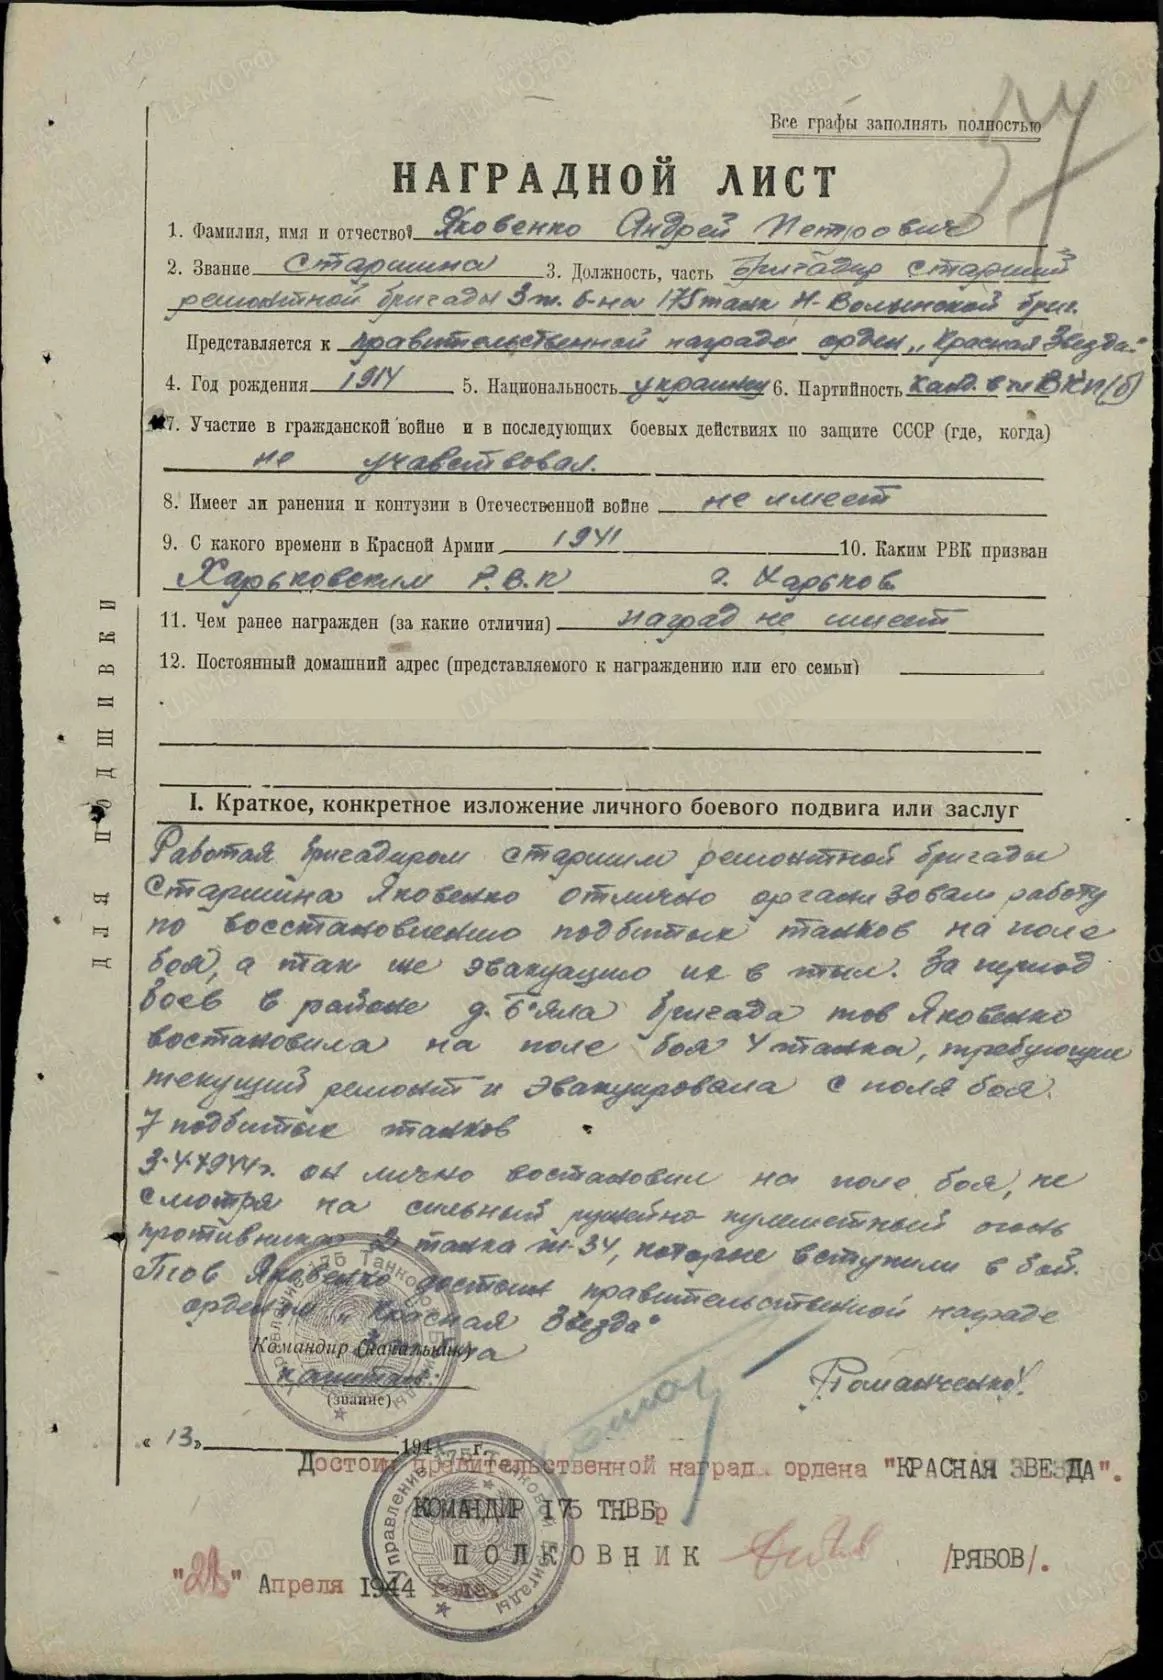 Все графы заполнять полностью
НАГРАДНОЙ ЛИСТ
1. Фамилия, имя и отчество Яковенко Андрей Петрович
2. Звание Старшина 3. Должность, часть Бригадир старший
ремонтной бригады 3 т. б-на 175 танк Н-Волынской бриг.
Представляется к правительственной награде орден „Красная Звезда"
4. Год рождения 1914 5. Национальность украинец 6. Партийность Канд. в чл ВКП(б)
7. Участие в гражданской войне и в последующих боевых действиях по защите СССР (где, когда)
не учавствовал.
8. Имеет ли ранения и контузии в Отечественной войне не имеет
9. С какого времени в Красной Армии 1941 10. Каким РВК призван
Харьковским Р.В.К г. Харьков
11. Чем ранее награжден (за какие отличия) наград не имеет
12. Постоянный домашний адрес (представляемого к награждению или его семьи)
ДЛЯ ПОДШИВКИ
I. Краткое, конкретное изложение личного боевого подвига или заслуг
Работая бригадиром старшим ремонтной бригады
Старшина Яковенко отлично организовал работу
по восстановлению подбитых танков на поле
боя, а так же эвакуацию их в тыл. За период
боев в районе д. бригада тов Яковенко
востановила на поле боя 4 танка, требующие
текущий ремонт и эвакуировала с поля боя.
7 подбитых танков
3.4.1944г. он лично востановил на поле боя, не
смотря на сильный ружейно пулеметный огонь
противника 2 танка т-34, которые вступили в бой.
Тов Яковенко достоин правительственной награде
орденом „Красная Звезда"
Командир (начальник)
капитан
(звание)
Романченко
„13" 194 г.
Достоин правительственной наград ордена "КРАСНАЯ ЗВЕЗДА".
КОМАНДИР 175 ТНВБр
ПОЛКОВНИК /РЯБОВ/.
Апреля 1944 года.
Управление 175 Танковой бригады